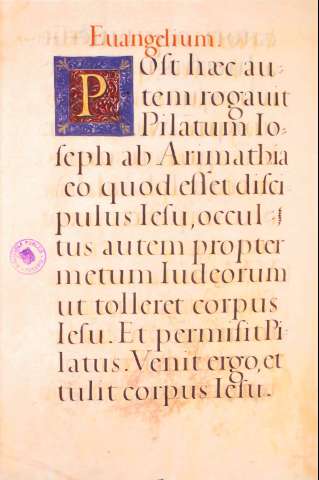 Euangelium.
Post hæc au-
tem rogauit
Pilatum Io-
seph ab Arimathia
eo quod esset disci
pulus Iesu, occul
tus autem propter
metum Iudeorum
ut tolleret corpus
Iesu. Et permisit Pi-
latus. Venit ergo, et
tulit corpus Iesu.